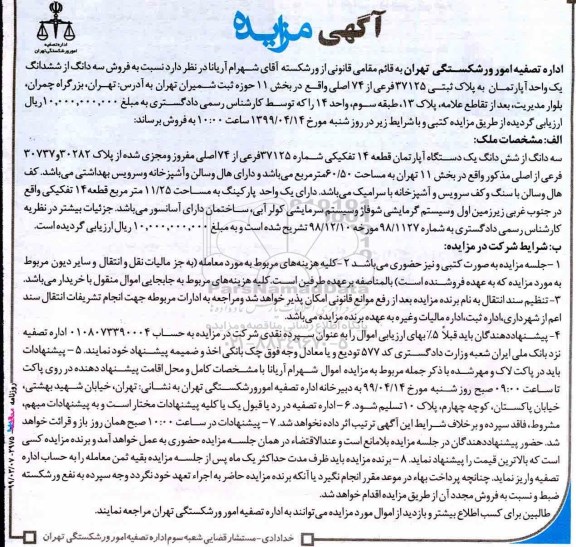 آگهی مزایده
اداره تصفیه
امور ورشکستگی تهران
اداره تصفیه امور ورشکستگی تهران به قائم مقامی قانونی از ورشکسته آقای شهرام آریانا در نظر دارد نسبت به فروش سه دانگ از ششدانگ
یک واحد آپارتمان به پلاک ثبتی ۳۷۱۲۵فرعی از ۷۴ اصلی واقع در بخش ۱۱ حوزه ثبت شمیران تهران به آدرس: تهران، بزرگراه چمران،
بلوار مدیریت، بعد از تقاطع علامه، پلاک ۱۳، طبقه سوم، واحد ۱۴ را که توسط کارشناس رسمی دادگستری به مبلغ ۱۰,۰۰۰,۰۰۰,۰۰۰ریال
ارزیابی گردیده از طریق مزایده کتبی و با شرایط زیر در روز شنبه مورخ ۱۳۹۹/۰۴/۱۴ ساعت ۱۰:۰۰ به فروش برساند:
الف: مشخصات ملک:
سه دانگ از شش دانگ یک دستگاه آپارتمان قطعه ۱۴ تفکیکی شماره ۳۷۱۲۵فرعی از ۷۴اصلی مفروز ومجزی شده از پلاک ۳۰۲۸۲و ۳۰۷۳۷
فرعی از اصلی مذکور واقع در بخش ۱۱ تهران به مساحت ۶۰/۵۰ مترمربع می باشد و دارای هال وسالن وآشپزخانه وسرویس بهداشتی می باشد. کف
هال وسالن با سنگ و کف سرویس و آشپزخانه با سرامیک می باشد. دارای یک واحد پارکینگ به مساحت ۱۱/۲۵ متر مربع قطعه ۱۴ تفکیکی واقع
در جنوب غربی زیرزمین اول وسیستم گرمایشی شوفاژ وسیستم سرمایشی کولر آبی، ساختمان دارای آسانسور می باشد. جزئیات بیشتر در نظریه
کارشناس رسمی دادگستری به شماره ۹۸/۱۱۲۷ مورخه ۹۸/۱۲/۱۰ تشریح شده است و به مبلغ ۱۰,۰۰۰,۰۰۰,۰۰۰ ریال ارزیابی گردیده است.
ب: شرایط شرکت در مزایده:
۱ -جلسه مزایده به صورت کتبی و نیز حضوری می باشد ۲ -کلیه هزینه های مربوط به مورد معامله (به جز مالیات نقل و انتقال و سایر دیون مربوط
به مورد مزایده که به عهده فروشنده است) بالمناصفه برعهده طرفین است. کلیه هزینه های مربوط به جابجایی اموال منقول با خریدار می باشد.
۳- تنظیم سند انتقال به نام برنده مزایده بعد از رفع موانع قانونی امکان پذیر خواهد شد و مراجعه به ادارات مربوطه جهت انجام تشریفات انتقال سند
اعم از شهرداری، اداره ثبت، اداره مالیات و غیره به عهده برنده مزایده می باشد.
۴- پیشنهاددهندگان باید قبلاً ۵٪ بهای ارزیابی اموال را به عنوان سپرده نقدی شرکت در مزایده به حساب ۰۱۰۸۰۷۳۳۹۰۰۰۴ اداره تصفیه
نزد بانک ملی ایران شعبه وزارت دادگستری کد ۵۷۷ تودیع و یا معادل وجه فوق چک بانکی اخذ و ضمیمه پیشنهاد خود نمایند. ۵ - پیشنهادات
باید در پاکت لاک و مهر شده با ذکر جمله مربوط به مزایده اموال شهرام آریانا با مشخصات کامل و محل اقامت پیشنهاد دهنده در روی پاکت
تا ساعت ۰۹:۰۰ صبح روز شنبه مورخ ۹۹/۰۴/۱۴ به دبیرخانه اداره تصفیه امور ورشکستگی تهران به نشانی: تهران، خیابان شهید بهشتی،
خیابان پاکستان، کوچه چهارم، پلاک ۱۰تسلیم شود. ۶ - اداره تصفیه در رد یا قبول یک یا کلیه پیشنهادات مختار است و به پیشنهادات مبهم،
مشروط، فاقد سپرده و بر خلاف شرایط این آگهی ترتیب اثر داده نخواهد شد. ۷ - پیشنهادات در ساعت ۱۰:۰۰ صبح همان روز باز و قرائت خواهد
شد. حضور پیشنهاددهندگان در جلسه مزایده بلامانع است و عندالاقتضاء در همان جلسه مزایده حضوری به عمل خواهد آمد و برنده مزایده کسی
است که بالاترین قیمت را پیشنهاد نماید. ۸ - برنده مزایده باید ظرف مدت حداکثر یک ماه پس از جلسه مزایده بقیه ثمن معامله را به حساب اداره
تصفیه واریز نماید. چنانچه پرداخت بهاء در موعد مقرر انجام نگیرد یا آنکه برنده مزایده حاضر به اجراء تعهد خود نگردد وجه سپرده به نفع ورشکسته
ضبط و نسبت به فروش مجدد آن از طریق مزایده اقدام خواهد شد.
طالبین برای کسب اطلاع بیشتر و بازدید از اموال مورد مزایده می توانند به اداره تصفیه امور ورشکستگی تهران مراجعه نمایند.
خدادادی - مستشار قضایی شعبه سوم اداره تصفیه امور ورشکستگی تهران